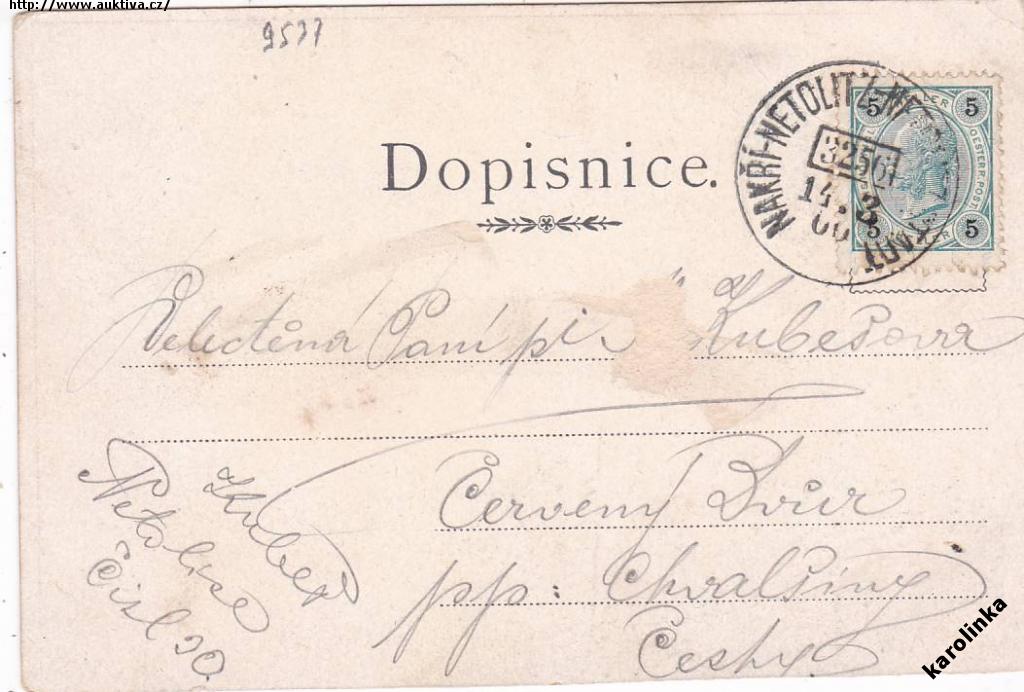 http://www.auktiva.cz/
9577
Dopisnice.
NAKŘÍ-NETOLITZ-NETOLICE
3256
14.3
00
5 HELLER 5
OESTERR. POST
5 5
Velectěná Paní pí. Kubešova
Červený Dvůr
pp: Chvalšiny
Čechy
Kubeš
Netolice
Čísl 20.
karolinka